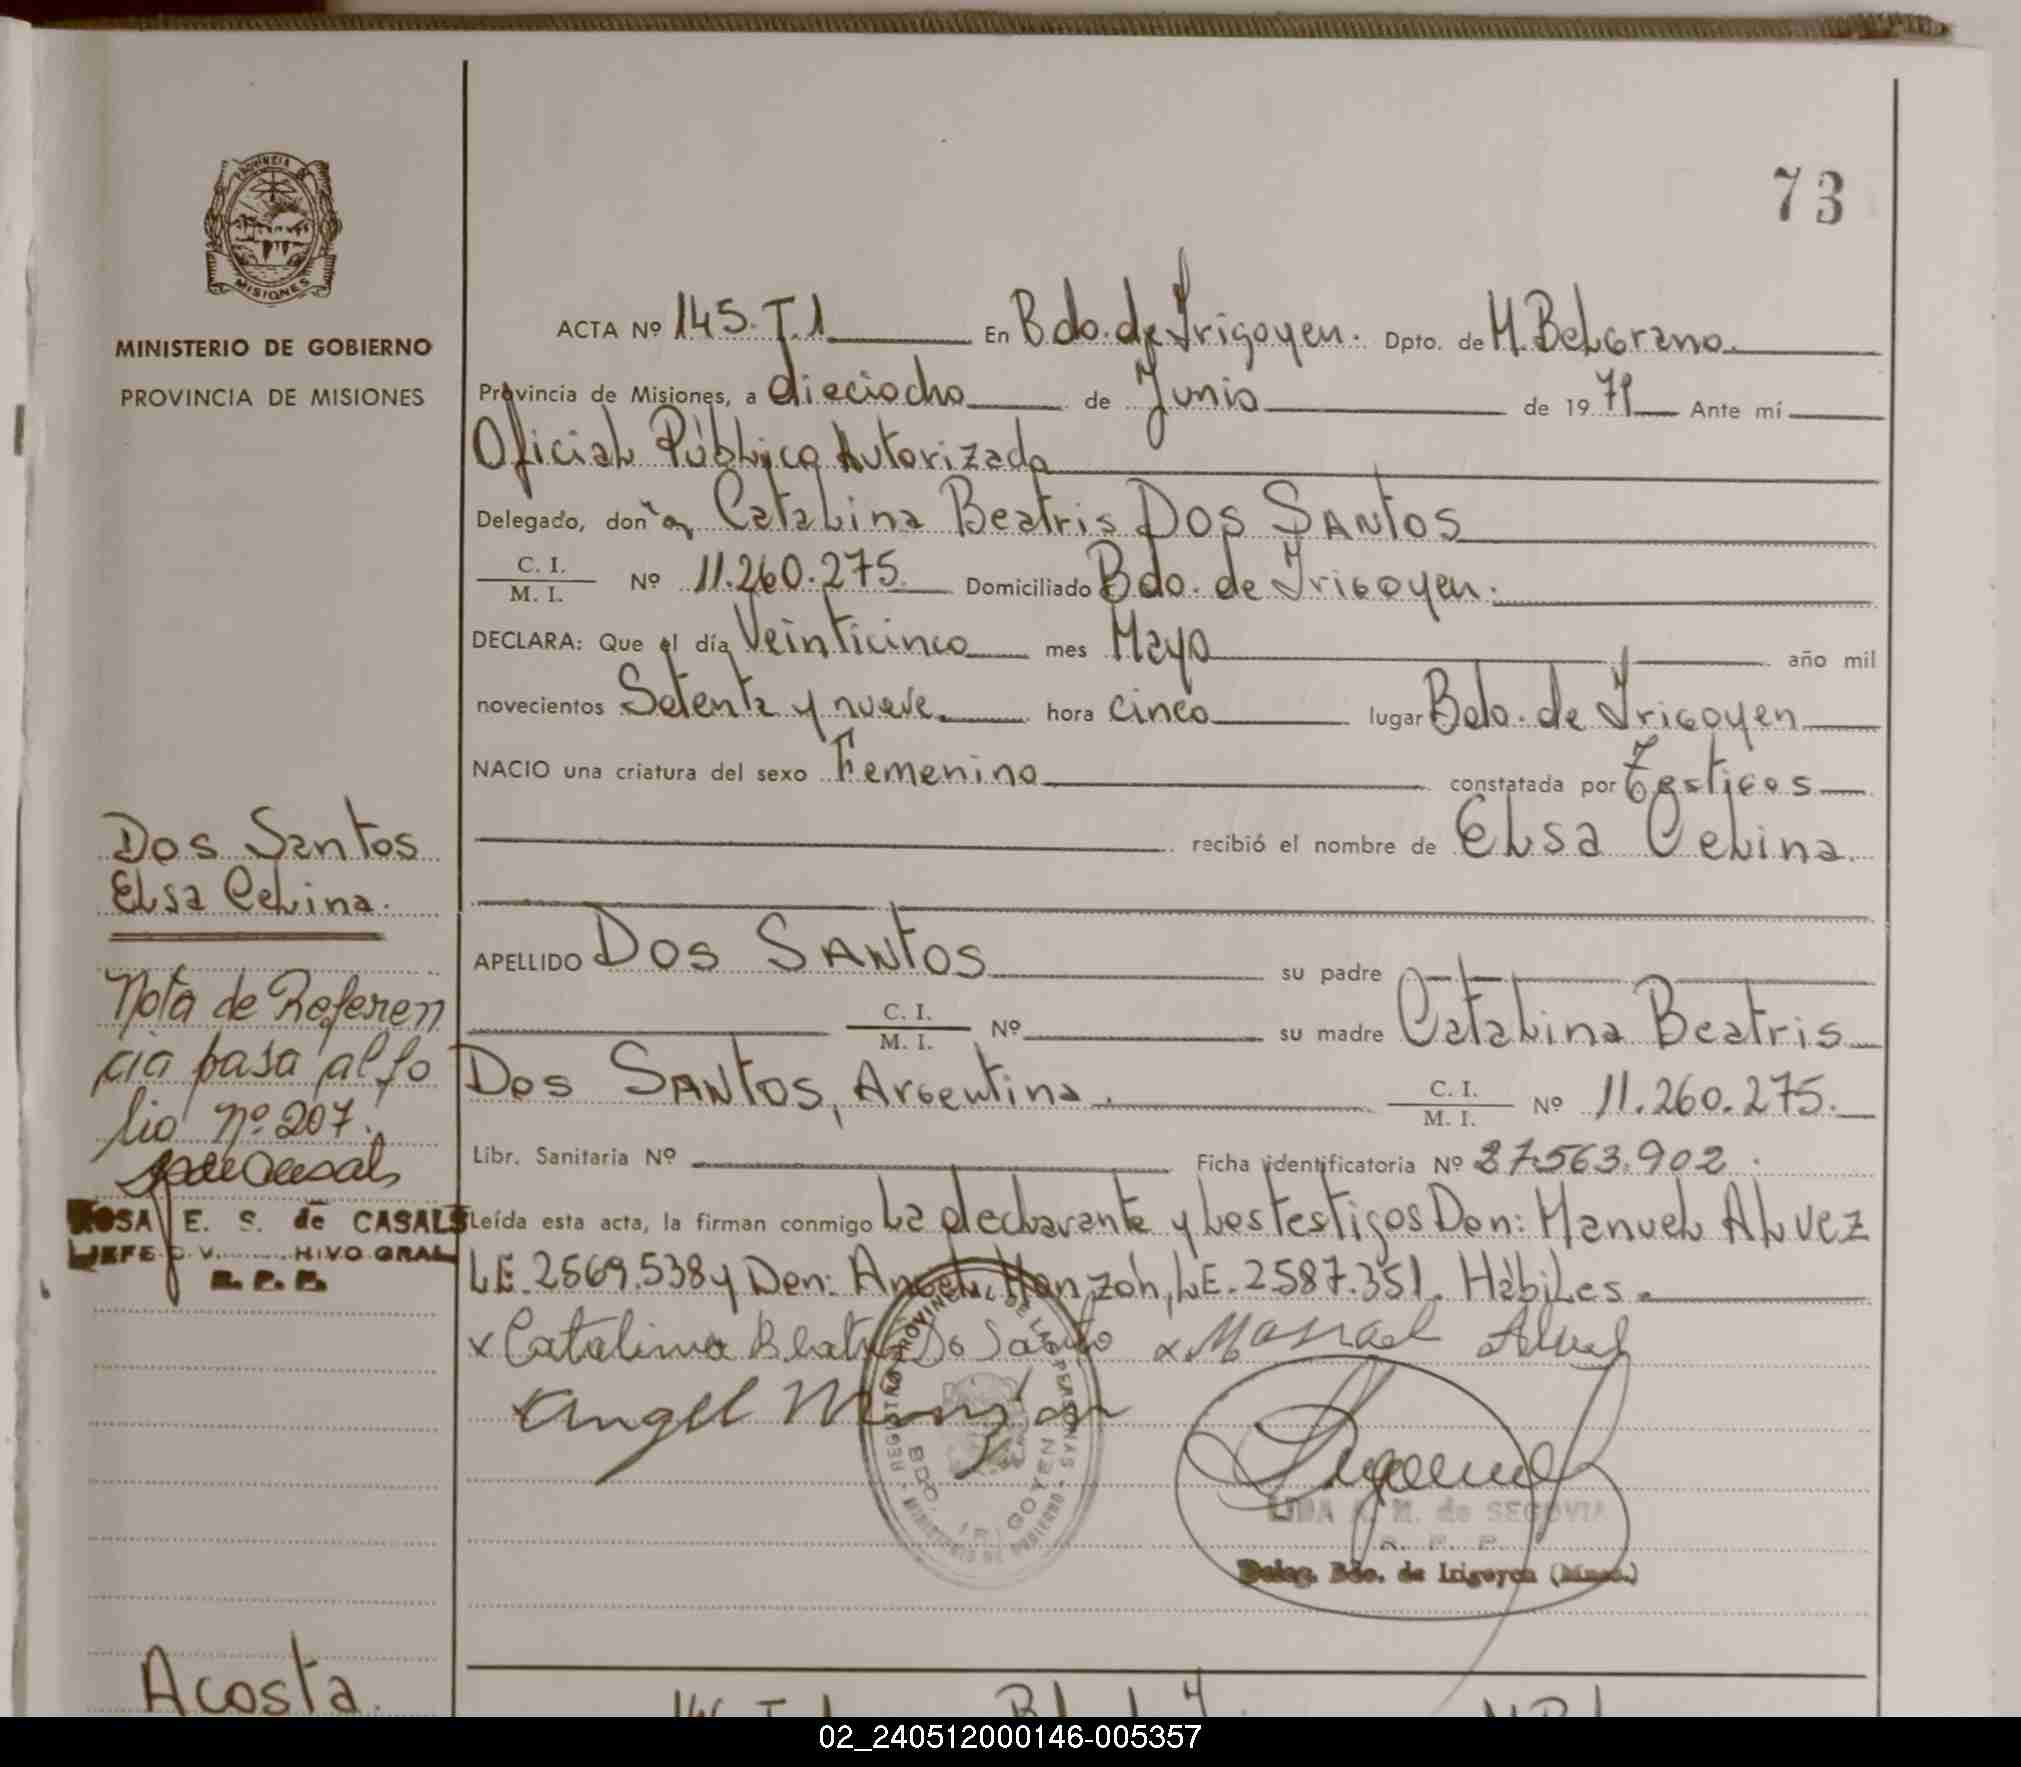 73
PROVINCIA DE
MISIONES
MINISTERIO DE GOBIERNO
PROVINCIA DE MISIONES
ACTA Nº 145. T. 1 En Bdo. de Irigoyen. Dpto. de M. Belgrano.
Provincia de Misiones, a dieciocho de Junio de 19 79 Ante mí
Oficial Público Autorizado
Delegado, don a Catalina Beatris Dos SANtos
C. I. / M. I. Nº 11.260.275. Domiciliado Bdo. de Irigoyen.
DECLARA: Que el día Veinticinco mes Mayo año mil
novecientos Setenta y nueve hora cinco lugar Bdo. de Irigoyen
NACIO una criatura del sexo Femenino constatada por Testigos
recibió el nombre de Elsa Celina.
Dos Santos
Elsa Celina.
APELLIDO Dos SANtos su padre
C. I. / M. I. Nº su madre Catalina Beatris
Dos SANtos, Argentina. C. I. / M. I. Nº 11.260.275.
Libr. Sanitaria Nº Ficha identificatoria Nº 27.563.902.
Leída esta acta, la firman conmigo La declarante y los testigos Don: Manuel Alvez
LE. 2569.538 y Don: Angel Monzón, LE. 2.587.351. Hábiles.
Nota de Referen
cia pasa al fo
lio nº 207.
ROSA E. S. de CASALS
JEFE HIVO GRAL
R. P. P.
x Catalina Beatris Do Santo x Manuel Alvez
x Angel Monzon
REGISTRO PROVINCIAL DE LAS PERSONAS
BDO. IRIGOYEN
MINISTERIO DE GOBIERNO
LIDA A. M. de SEGOVIA
R. P. P.
Deleg. Bdo. de Irigoyen (Mnes.)
Acosta.
146 T. 1
02_240512000146-005357